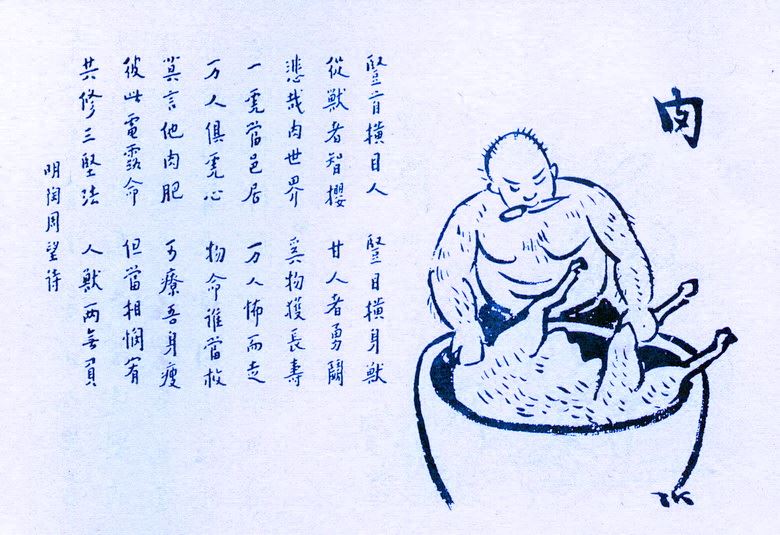 肉
豎首橫目人 豎目橫身獸
從獸者智攖 甘人者勇鬭
悲哉肉世界 奚物獲長壽
一虎當邑居 万人怖而走
万人俱虎心 物命誰當救
莫言他肉肥 可療吾身瘦
彼此電露命 但當相憫宥
共修三堅法 人獸两無負
明陶周望詩
TK